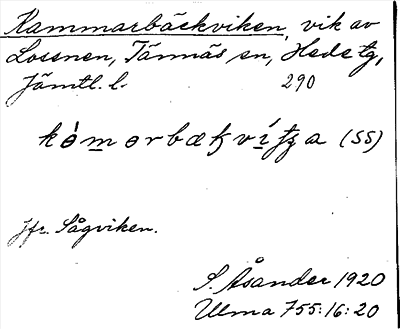 Kammarbäckviken, vik av
Lossnen, Tännäs sn, Hede tg,
Jämtl. l. 290
(SS)
jfr. Sågviken.
S. Åsander 1920
Ulma 755:16:20